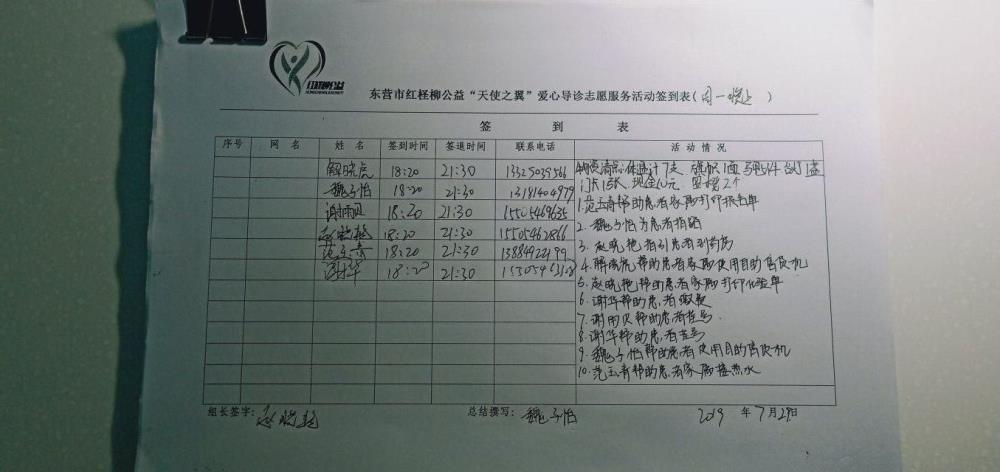 红柽柳公益
东营市红柽柳公益“天使之翼”爱心导诊志愿服务活动签到表(周一晚上)
签 到 表
序号 网 名 姓 名 签到时间 签退时间 联系电话 活动情况
解晓虎 18:20 21:30 13325039566 物资清点:体温计7支 旗帜1面
魏子怡 18:20 21:30 13181404979 门卡15张 现金10元
谢雨贝 18:20 21:30 15505469635 1.范玉青帮助患者家属打印报告单
赵晓艳 18:20 21:30 15505462866 2.魏子怡为患者指路
范玉青 18:20 21:30 13884922199 3.赵晓艳指引患者到药房
谢华 18:20 21:30 4.解晓虎帮助患者家属使用自助售货机
5.赵晓艳帮助患者家属打印化验单
6.谢华帮助患者缴费
7.谢雨贝帮助患者挂号
8.谢华帮助患者挂号
9.魏子怡帮助患者使用自助售货机
10.范玉青帮助患者家属接热水
组长签字:赵晓艳 总结撰写:魏子怡 2019 年7月29日